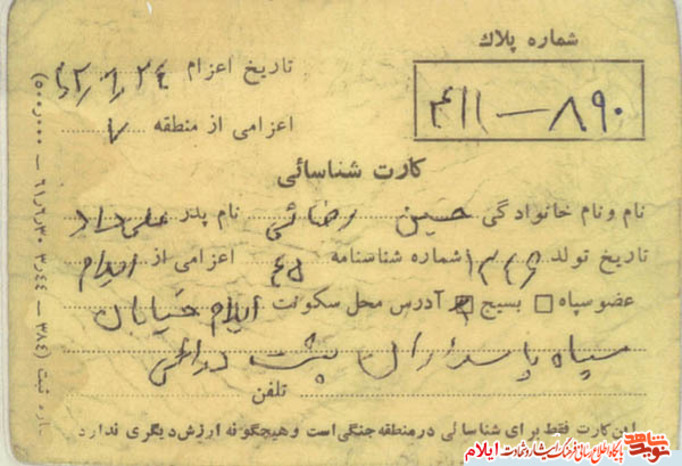 شماره پلاك
۴۱۱ — ۸۹۰
تاریخ اعزام ۶۲٫۹٫۲۴
اعزامی از منطقه ۷
کارت شناسائی
نام و نام خانوادگی حسین رضائی نام پدر علی داد
تاریخ تولد شماره شناسنامه ۴۵ اعزامی از ایلام
عضو سپاه □ بسیج آدرس محل سکونت ایلام خیابان
سپاه پاسداران پشت
تلفن
این کارت فقط برای شناسائی در منطقه جنگی است و هیچگونه ارزش دیگری ندارد
نوید شاهد
پایگاه اطلاع رسانی فرهنگ ایثار و شهادت ایلام